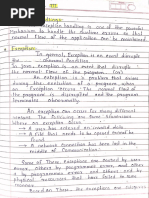 III
Exception handling is one of the powerful
mechanism to handle the runtime errors so that
normal flow of the application can be maintained
Exception:
In general, Exception is an event that disrupts
the normal condition.
In java, exception is an event that
the normal flow of the program. Exception
is an unwanted or unexpected event, which occurs
during the execution of a program. When an
Exception occurs. The normal flow of
the program is disrupted and the program
terminates Abnormally.
An exception can occur for many different
reasons. The following are some scenarios
where an exception occurs.
A user has entered an invalid data
A file needs to be opened cannot be found
A network connection has been lost in the
middle of communications.
Some of these Exceptions are caused by user
errors, others by programmer error, and others
by physical resources
Based on these. The Exceptions are